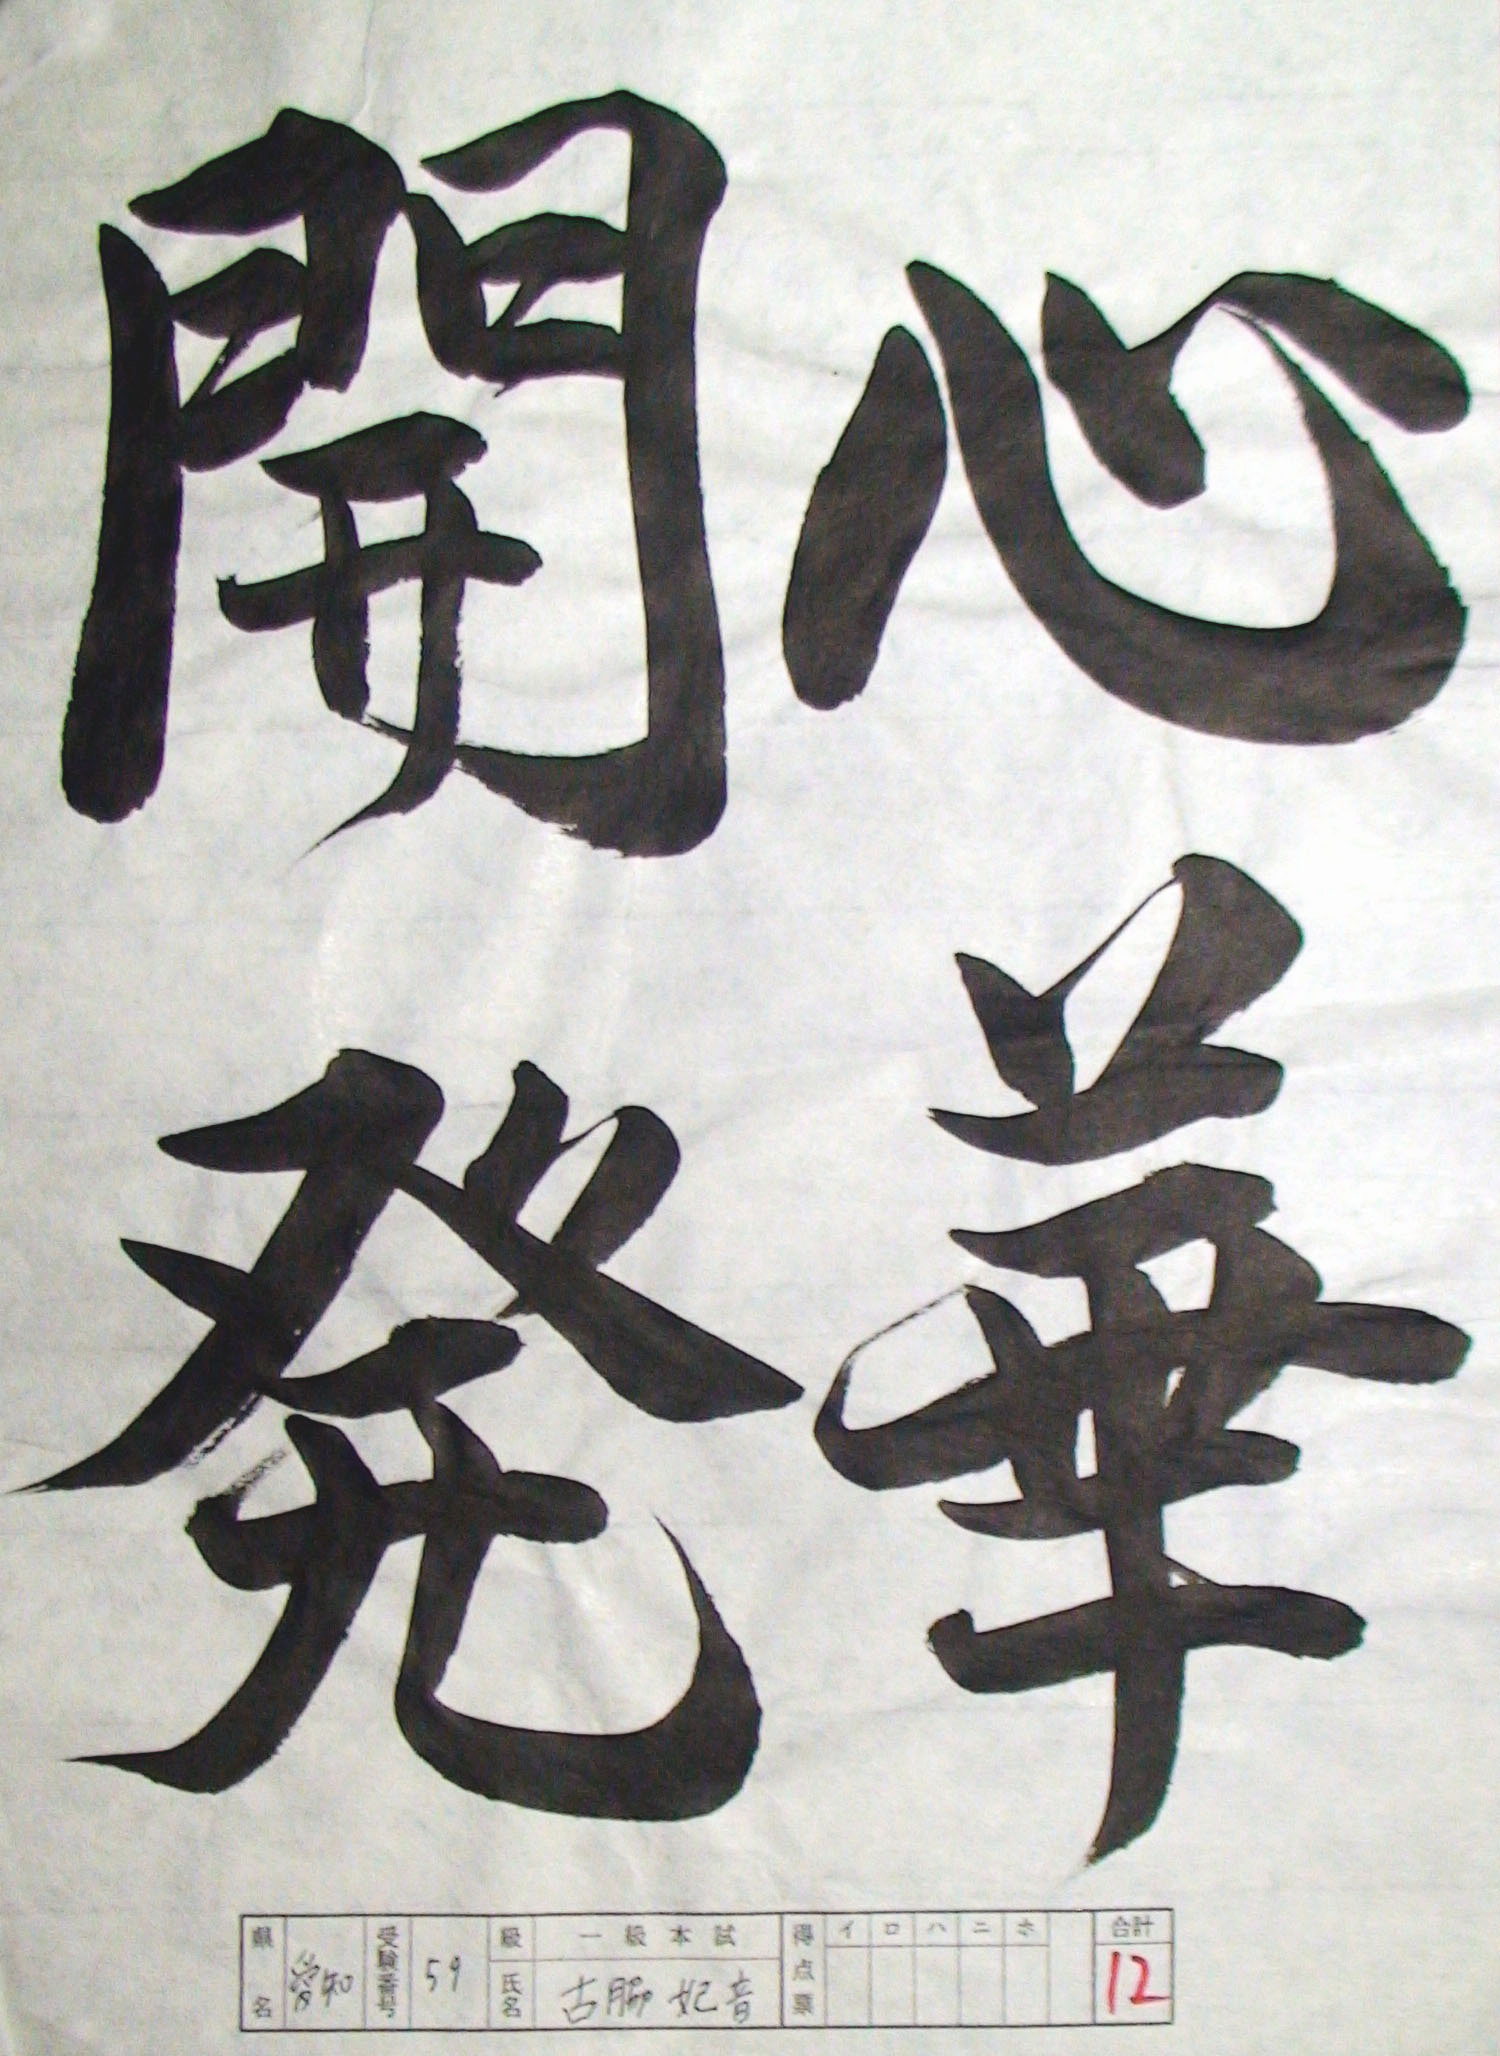 心華
開発
県名 愛知 受験番号 59 級 一級本試 得点票 イ ロ ハ ニ ホ 合計
氏名 古脇妃音 12